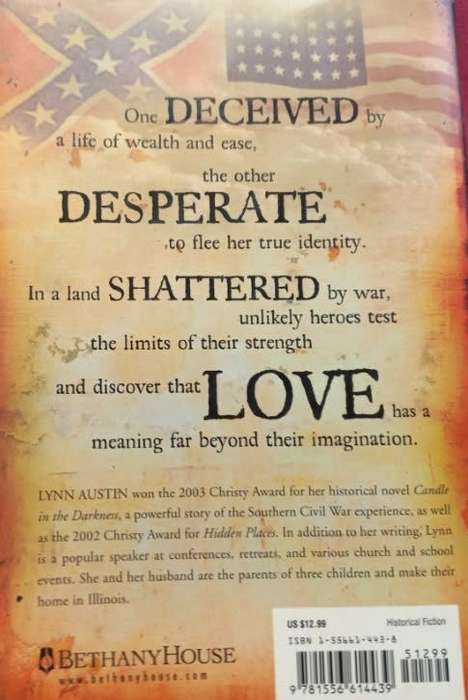 One DECEIVED by
a life of wealth and ease,
the other
DESPERATE
to flee her true identity.
In a land SHATTERED by war,
unlikely heroes test
the limits of their strength
and discover that LOVE has a
meaning far beyond their imagination.
LYNN AUSTIN won the 2003 Christy Award for her historical novel Candle
in the Darkness, a powerful story of the Southern Civil War experience, as well
as the 2002 Christy Award for Hidden Places. In addition to her writing, Lynn
is a popular speaker at conferences, retreats, and various church and school
events. She and her husband are the parents of three children and make their
home in Illinois.
US $12.99 Historical Fiction
ISBN 1-55661-443-8
51299
9 781556 614439
BETHANYHOUSE
www.bethanyhouse.com